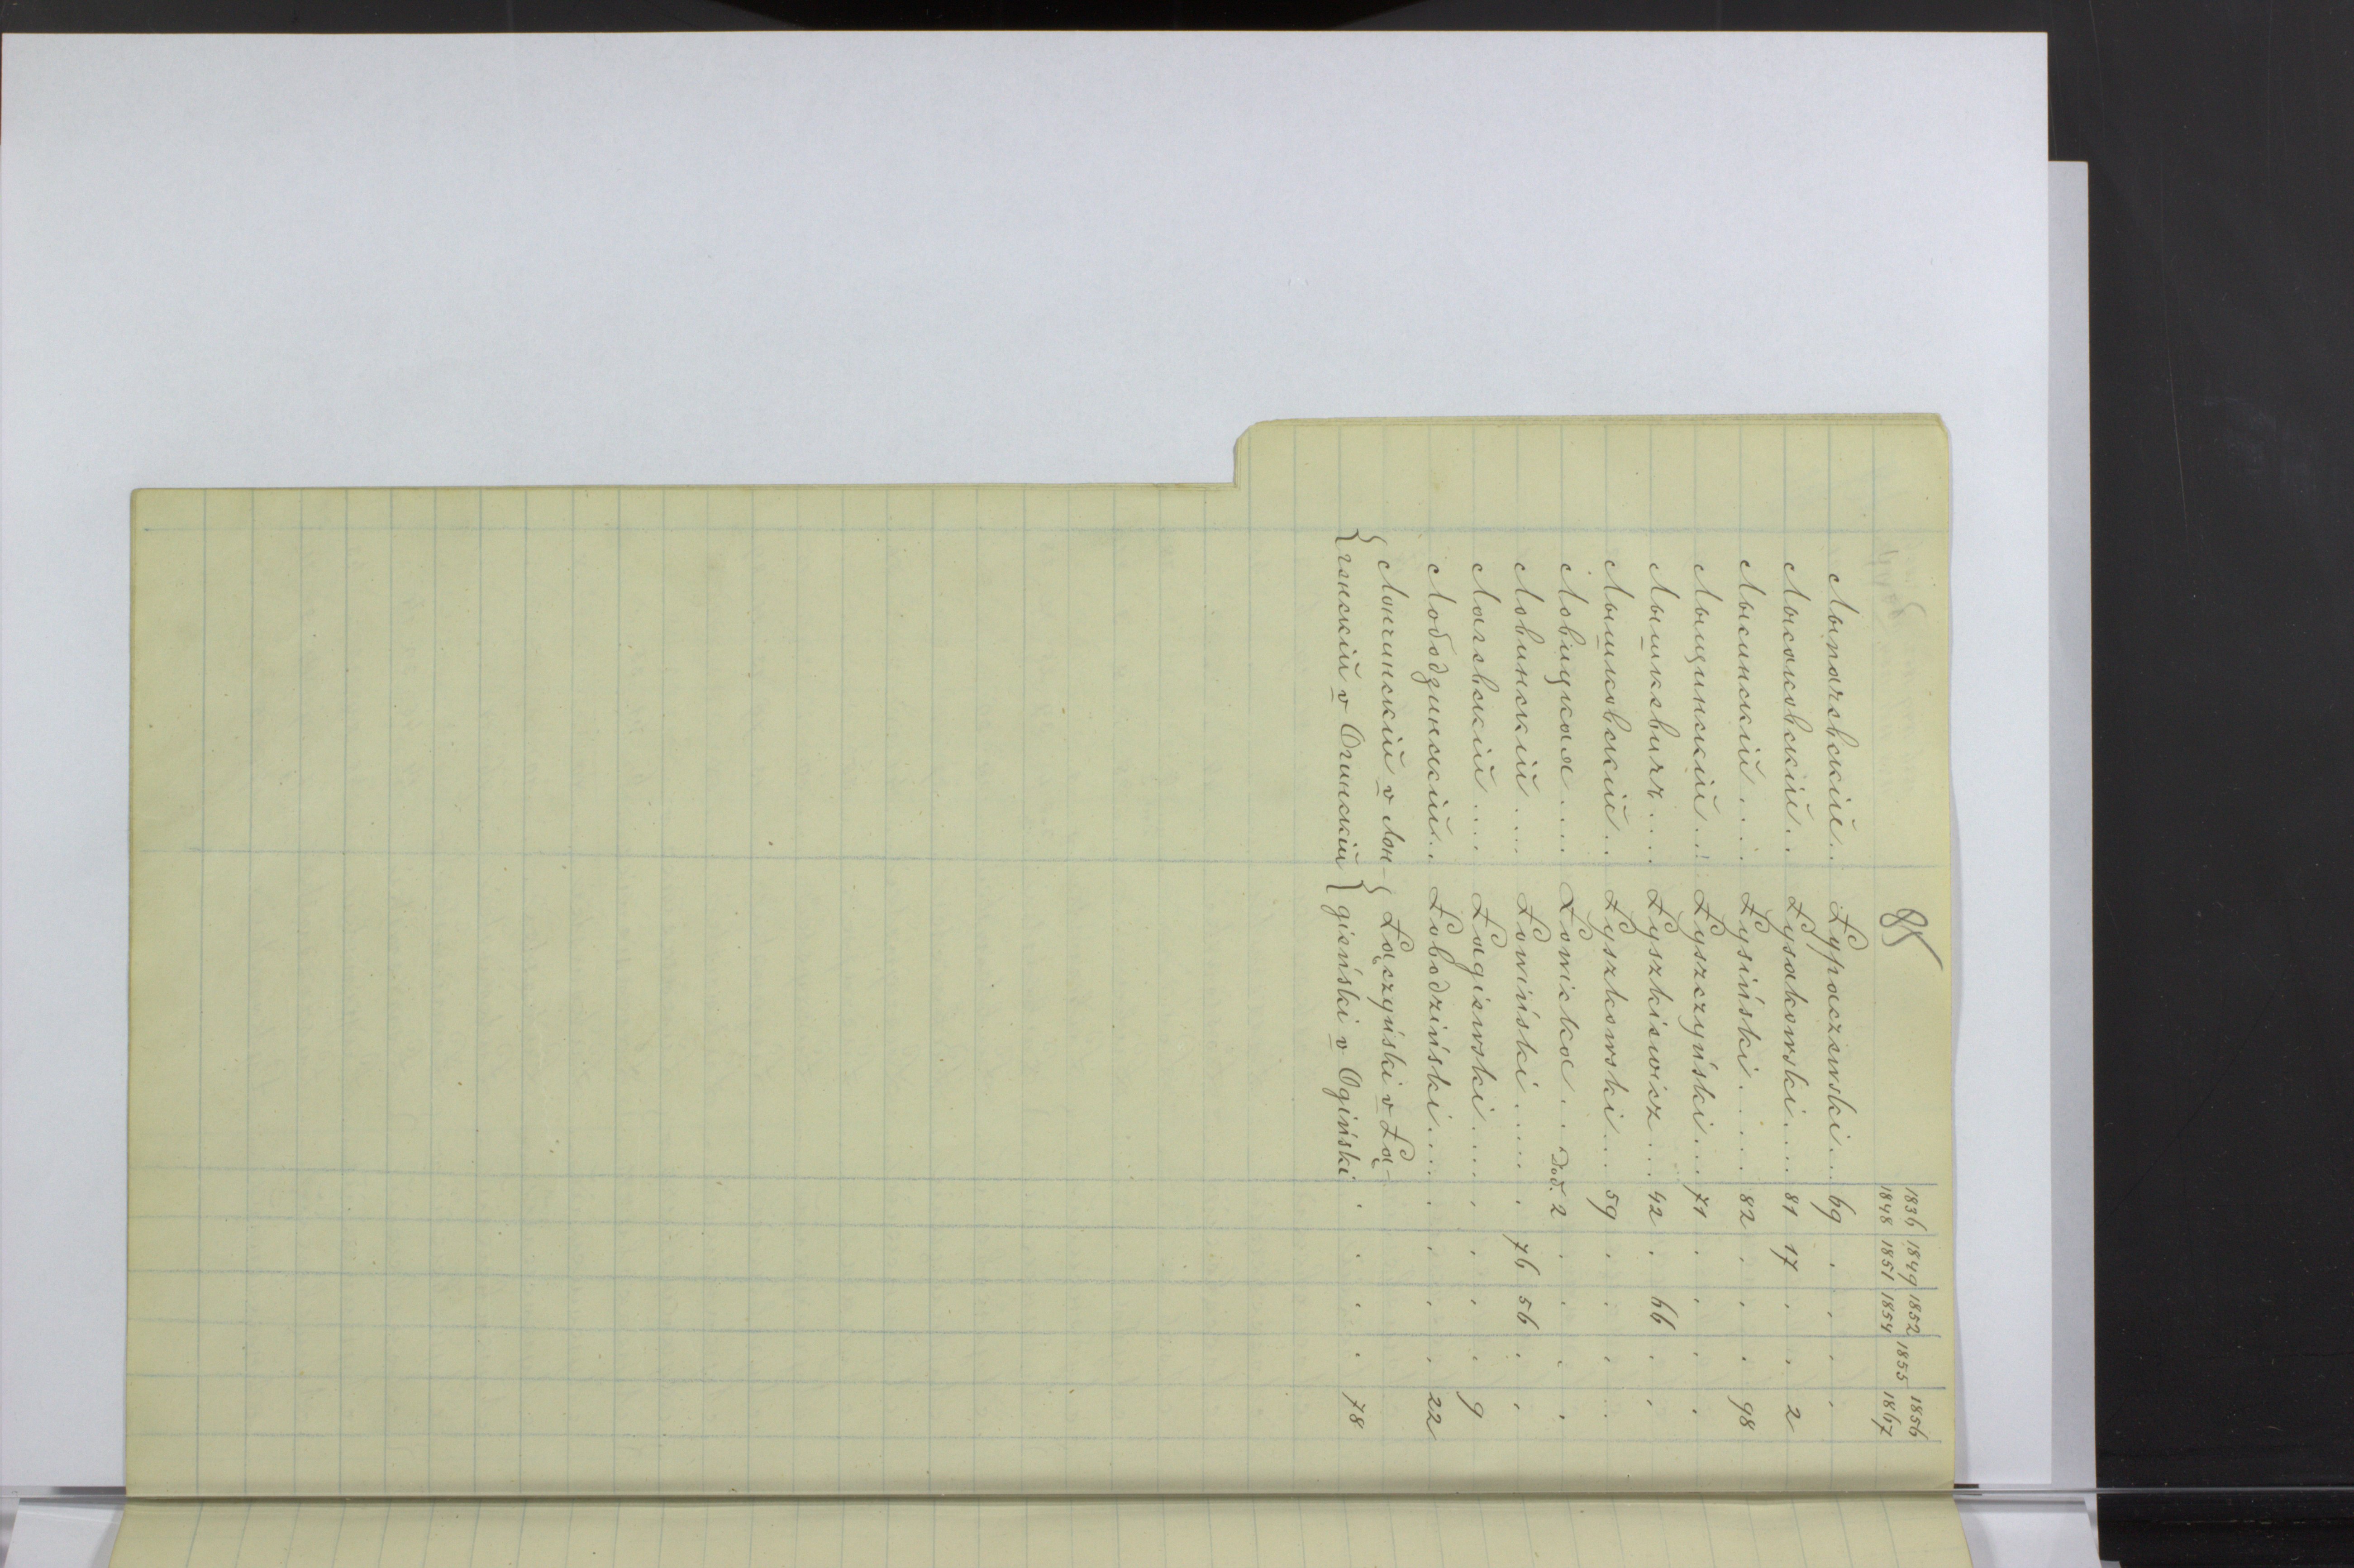 85
1836 1849 1852 1855 1856
1848 1851 1854 1867
Лыпачевскій.. Łypaczewski... 69 . . . .
Лысаковскій.. Łysakowski.... 81 17 . . 2
Лысинскій.... Łysiński..... 82 . . . 98
Лыщинскій... Łyszczyński... 71 . . . .
Лышкевичъ.... Łyszkiewicz... 42 . 66 . .
Лышковскій.. Łyszkowski... 59 . . . .
Ловицкая.... Łowicka... Dod. 2 . . . .
Ловинскій.... Łowiński..... . 76 56 . .
Лагевскій.... Łagiewski.... . . . . 9
Лободзинскій.. Łobodziński.... . . . . 22
Лончинскій v Лон- Łączyński v Łą-
генскій v Огинскій gieński v Ogiński . . . . 78